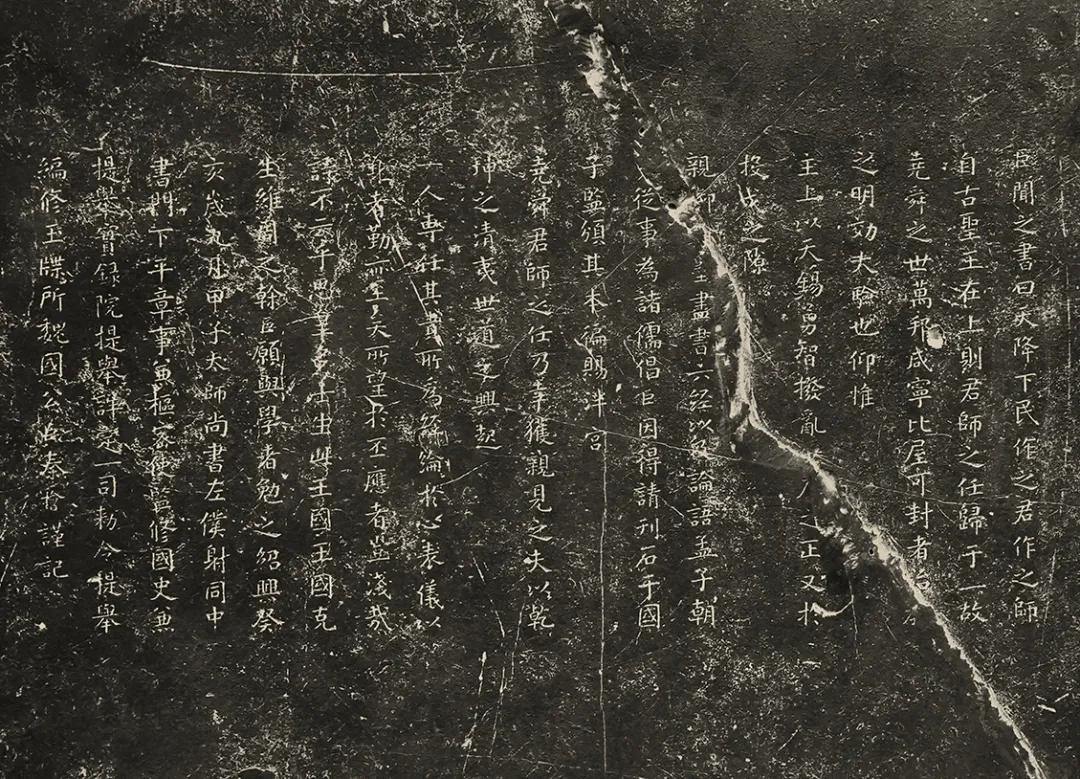 臣聞之書曰天降下民作之君作之師
自古聖王在上則君師之任歸于一故
堯舜之世萬邦咸寧比屋可封者
之明効大驗也仰惟
主上以天錫勇智撥亂 之正又於
投戈之隙
親 盡書六經以及論語孟子朝
夕從事為諸儒倡臣因得請刊石于國
子監頒其本徧賜泮宮
堯舜君師之任乃幸獲親見之夫以乾
坤之清夷世道之興起
一人專任其責所為經綸於心表儀以
身者勤亦至矣所望於丕應者豈淺哉
詩不云乎思皇多士生此王國王國克
生維周之楨臣願與學者勉之紹興癸
亥歲九月甲子太師尚書左僕射同中
書門下平章事兼樞密使監修國史兼
提舉實錄院提舉詳定一司勑令提舉
編修玉牒所魏國公臣秦檜謹記